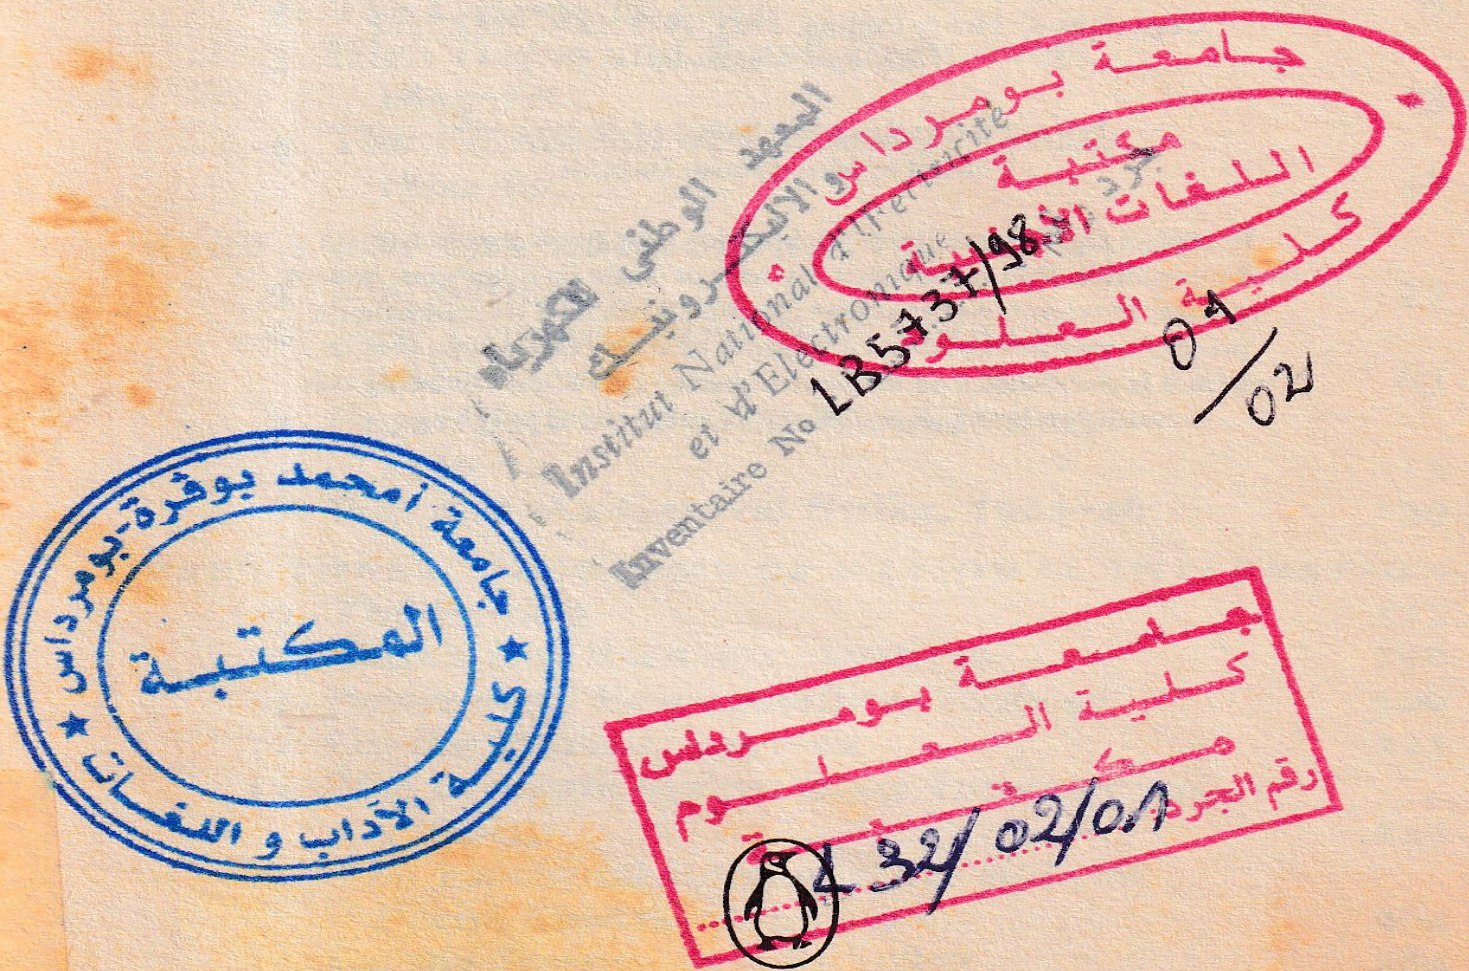 جامعة بومرداس
مكتبة
اللغات الأجنبية
كلية العلوم
المعهد الوطني للكهرباء
والاليكترونيك
جرد رقم
Institut National d'Electricité
et d'Electronique
Inventaire No LB5737/98
01
/02
جامعة أمحمد بوقرة-بومرداس
المكتبة
كلية الآداب و اللغات
جامعة بومرداس
كلية العلوم
مكتبة
رقم الجرد L 32/02/01